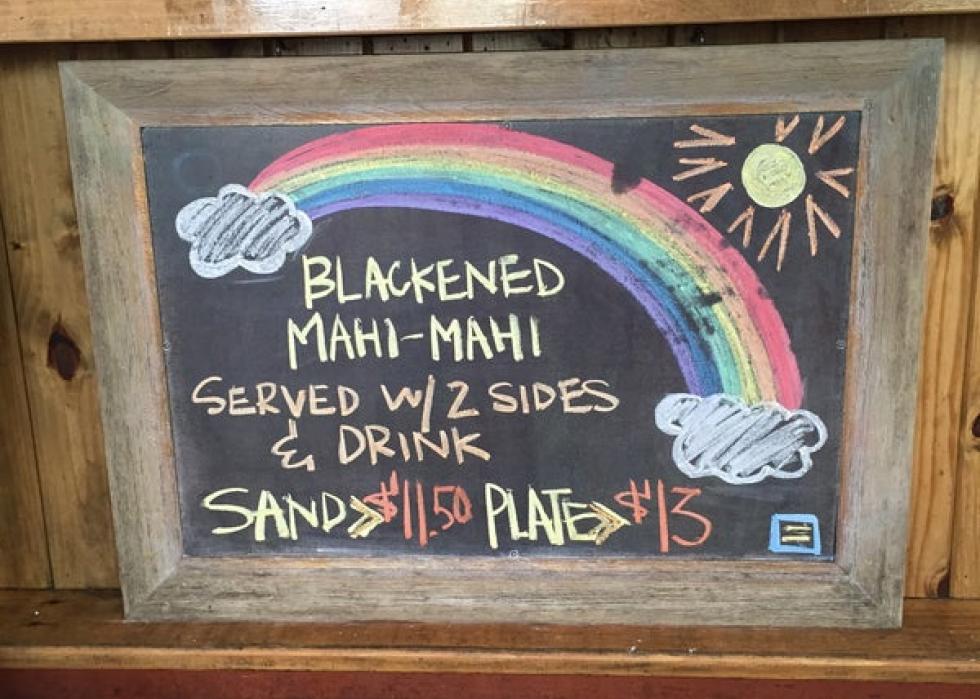 BLACKENED
MAHI-MAHI
SERVED W/ 2 SIDES
& DRINK
SAND>>$11.50 PLATE>>$13